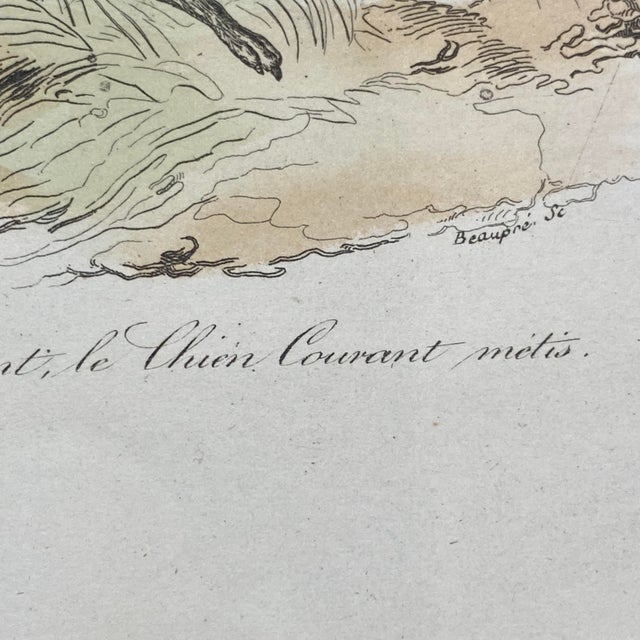 Beaupré. Sc
nt, le Chien Courant métis.